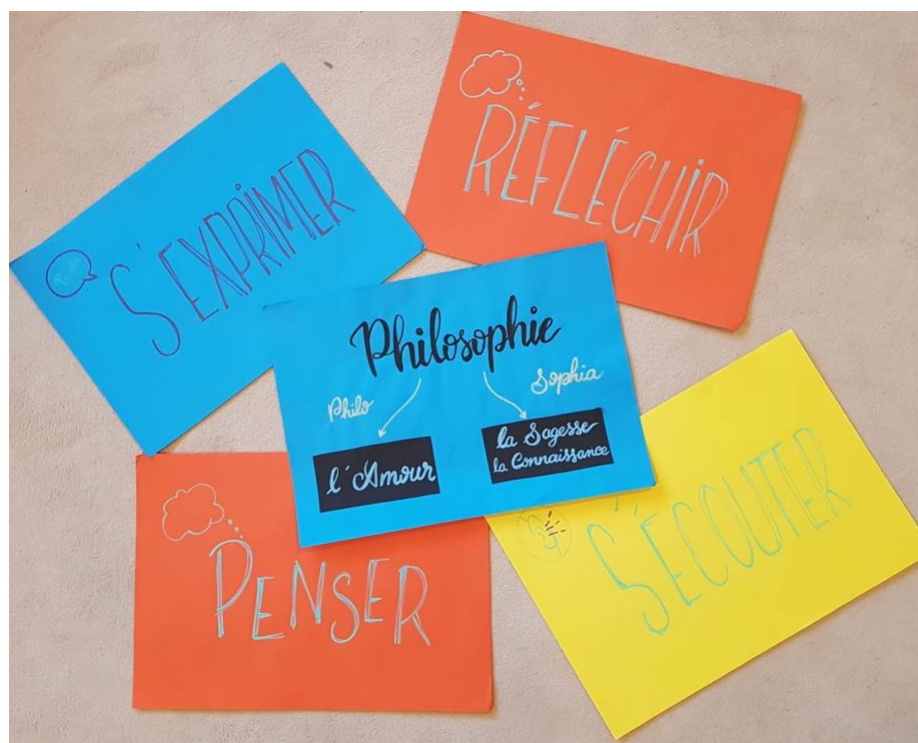 S'EXPRIMER
RÉFLÉCHIR
Philosophie
Philo
Sophia
l'Amour
la Sagesse
la Connaissance
PENSER
S'ÉCOUTER